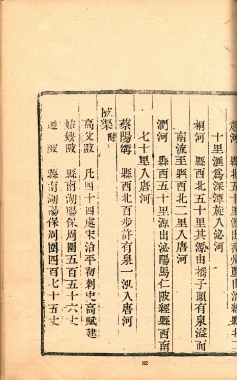 十里滙爲深潭旋入泌河
桐河　縣西北五十里其源由橋子頭有泉溢而
南流至縣西北二里入唐河
澗河　縣西五十里源出泌陽馬仁陂經縣西南
七十里入唐河
蔡陽㙩　縣西北百步許有泉一泓入唐河
陂渠
高父陂　凡四十四處宋治平初刺史高賦建
始嫂陂　縣南湖陽保周圍五百五十六丈
　陂　縣南湖陽保周圍四百七十五丈